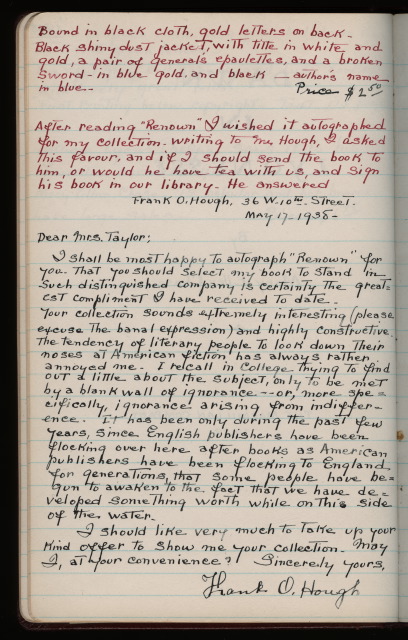 Bound in black cloth, gold letters on back-
Black shiny dust jacket, with title in white and
gold, a pair of generals epaulettes, and a broken
sword - in blue gold, and black - author's name
in blue--
Price $2.50
After reading "Renown" I wished it autographed
for my collection. Writing to Mr. Hough, I asked
this favour, and if I should send the book to
him, or would he have tea with us, and sign
his book in our library. He answered
Frank O. Hough, 36 W. 10th. Street.
May 17-1938-
Dear Mrs. Taylor;
I shall be most happy to autograph "Renown" for
you. That you should select my book to stand in
such distinguished company is certainly the great-
est compliment I have received to date.
Your collection sounds extremely interesting (please
excuse the banal expression) and highly constructive.
The tendency of literary people to look down their
noses at American fiction has always rather
annoyed me. I recall in College trying to find
out a little about the subject, only to be met
by a blank wall of ignorance -- or, more spe-
cifically, ignorance arising from indiffer-
ence. It has been only during the past few
years, since English publishers have been
flocking over here after books as American
publishers have been flocking to England
for generations, that some people have be-
gun to awaken to the fact that we have de-
veloped something worth while on this side
of the water.
I should like very much to take up your
kind offer to show me your collection. May
I, at your convenience? Sincerely yours,
Frank O. Hough